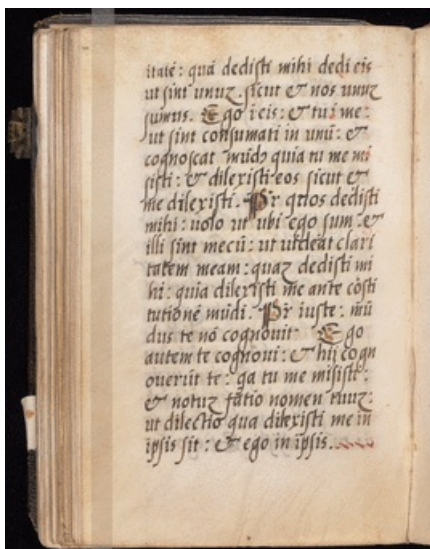 itatē : quā dedisti mihi dedi eis
ut sint unuz . sicut & nos unuz
sumus . Ego i eis : & tu i me :
ut sint consumati in unū : &
cognoscat mūdꝫ quia tu me mi
sisti : & dilexisti eos sicut &
me dilexisti . Pr̄ qͦꝫ dedisti
mihi : uolo ut ubi ego sum . &
illi sint mecū : ut uideāt clari
tatem meam : quaz dedisti mi
hi : quia dilexisti me ante cōsti
tutionē mūdi . Pr̄ iuste : mū
dus te nō cognouit Ego
autem te cognoui : & hij cogn
ouerūt te : qa tu me misisti :
& notuz fatio nomen tuuz :
ut dilectio qua dilexisti me in
ipsis sit : & ego in ipsis .